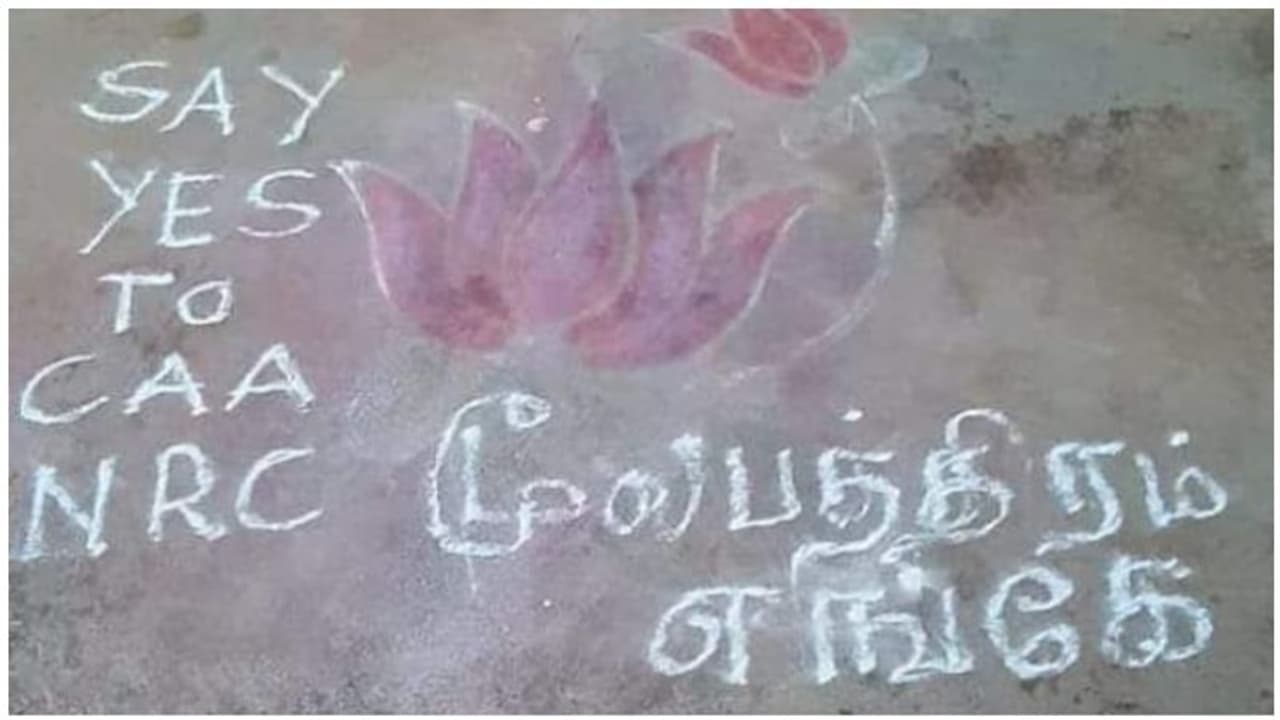 SAY
YES
TO
CAA
NRC
மூலபத்திரம்
எங்கே